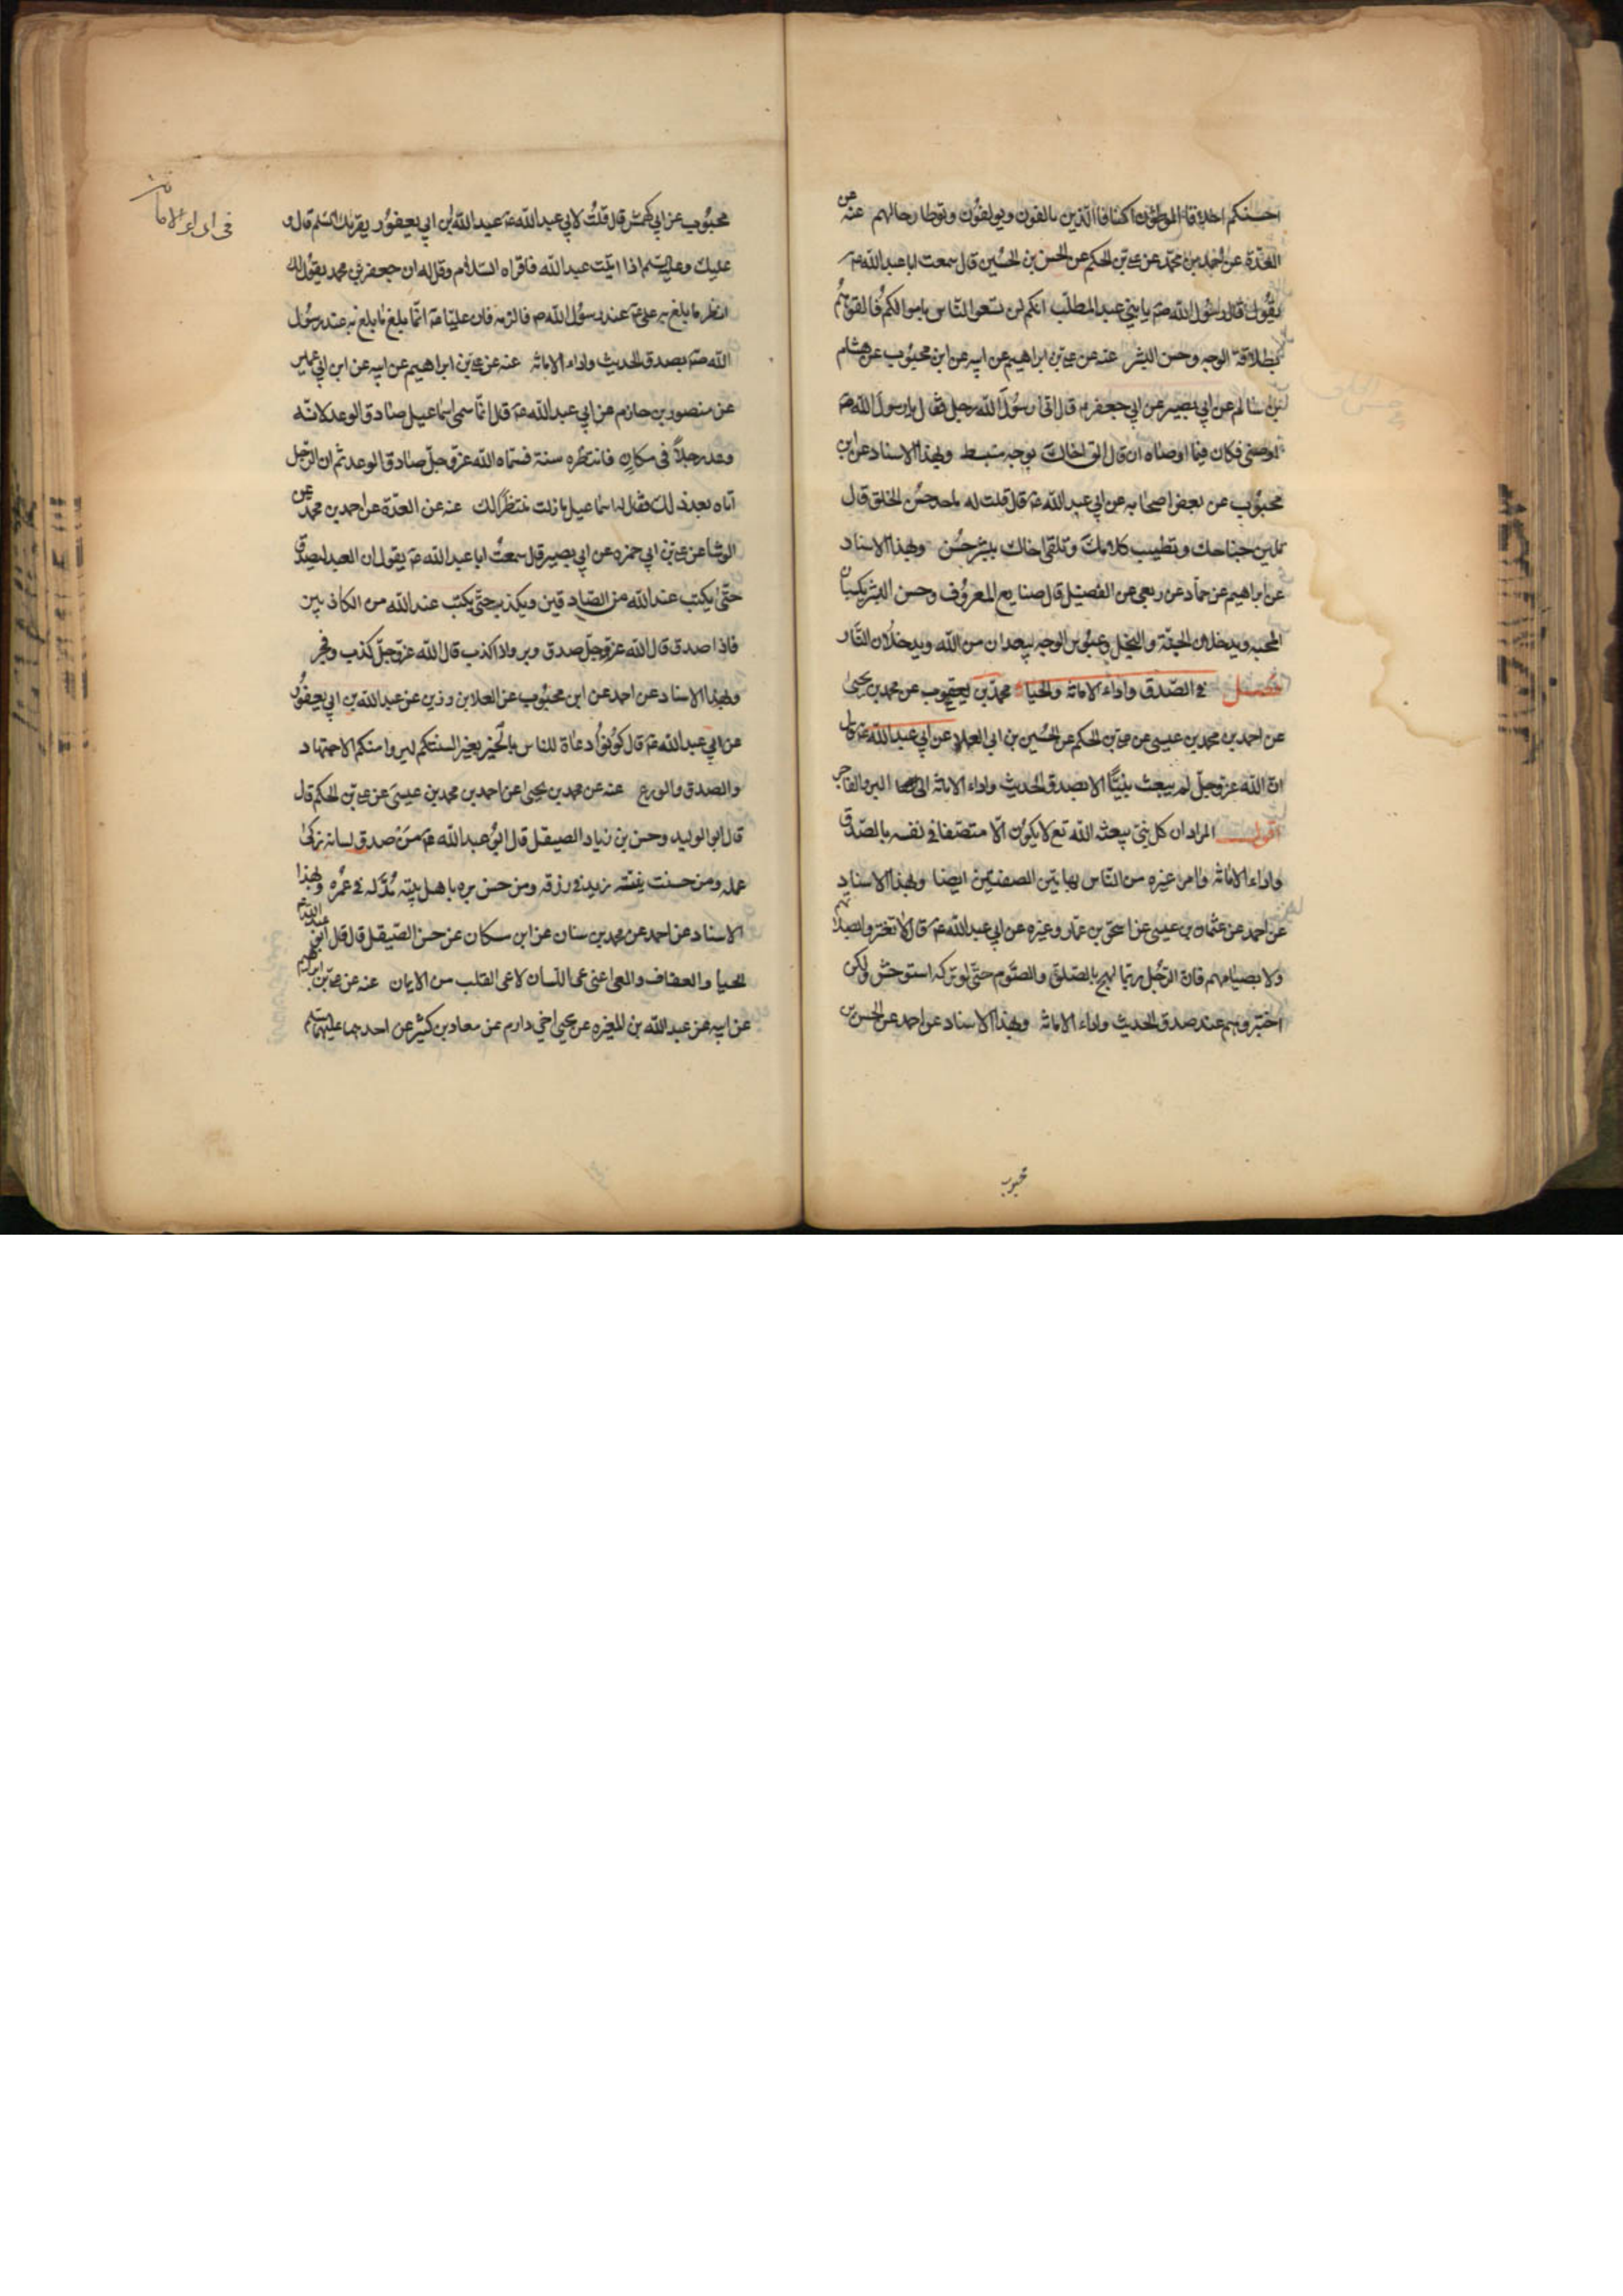 احسنكم اخلاقا الموطئون اكنافا الذين يالفون ويولفون وتوطا رحالهم عنه عن
العدة عن احمد بن محمد عن علي بن الحكم عن الحسن بن الحسين قال سمعت ابا عبد الله ع
يقول قال رسول الله صه يا بني عبد المطلب انكم لن تسعوا الناس باموالكم فالقوهم
بطلاقة الوجه وحسن البشر عنه عن علي بن ابراهيم عن ابيه عن ابن محبوب عن هشام
بن سالم عن ابي بصير عن ابي جعفر ع قال اتى رسول الله رجل فقال يا رسول الله صه
اوصني فكان فيما اوصاه ان قال الق اخاك بوجه منبسط وبهذا الاسناد عن ابن
محبوب عن بعض اصحابه عن ابي عبد الله عه قال قلت له ما حد حسن الخلق قال
تلين جناحك وتطيب كلامك وتلقى اخاك ببشر حسن وبهذا الاسناد
عن ابراهيم عن حماد عن ربعي عن الفضيل قال صنايع المعروف وحسن البشر يكسبان
المحبه ويدخلان الجنة والبخل وعبوس الوجه يبعدان من الله ويدخلان النار
فصل في الصدق واداء الامانة والحياء محمد بن يعقوب عن محمد بن يحيى
عن احمد بن محمد بن عيسى عن علي بن الحكم عن الحسين بن ابي العلا عن ابي عبد الله عه قال
ان الله عز وجل لم يبعث نبيا الا بصدق الحديث واداء الامانة الى البر والفاجر
اقول المراد ان كل نبي يبعثه الله تع لا يكون الا متصفا في نفسه بالصدق
واداء الامانة وامر غيره من الناس بهاتين الصفتين ايضا وبهذا الاسناد
عن احمد عن عثمان بن عيسى عن اسحق بن عمار وغيره عن ابي عبد الله عه قال لا تغتروا بصلاتهم
ولا بصيامهم فان الرجل ربما لهج بالصلوة والصوم حتى لو تركه استوحش ولكن
اختبروهم عند صدق الحديث واداء الامانة وبهذا الاسناد عن احمد عن الحسن بن
محبوب
في اداء الامانة
محبوب عن ابي كهمش قال قلت لابي عبد الله عه عبد الله بن ابي يعفور يقرئك السلم قال و
عليك وعليه السلم اذا اتيت عبد الله فاقراه السلام وقل له ان جعفر بن محمد يقول لك
انظر ما بلغ به علي عه عند رسول الله صه فالزمه فان عليا عه انما بلغ ما بلغ به عند رسول
الله صه بصدق الحديث واداء الامانة عنه عن علي بن ابراهيم عن ابيه عن ابن ابي عمير
عن منصور بن حازم عن ابي عبد الله عه قال انما سمي اسماعيل صادق الوعد لانه
وعد رجلا في مكان فانتظره سنة فسماه الله عز وجل صادق الوعد ثم ان الرجل
اتاه بعد ذلك فقال له اسماعيل ما زلت منتظرا لك عنه عن العدة عن احمد بن محمد عن
الوشا عن علي بن ابي حمزه عن ابي بصير قال سمعت ابا عبد الله عه يقول ان العبد ليصدق
حتى يكتب عند الله من الصادقين ويكذب حتى يكتب عند الله من الكاذبين
فاذا صدق قال الله عز وجل صدق وبر واذا كذب قال الله عز وجل كذب وفجر
وبهذا الاسناد عن احمد عن ابن محبوب عن العلا بن رزين عن عبد الله بن ابي يعفور
عن ابي عبد الله عه قال كونوا دعاة للناس بالخير بغير السنتكم ليروا منكم الاجتهاد
والصدق والورع عنه عن محمد بن يحيى عن احمد بن محمد بن عيسى عن علي بن الحكم قال
قال ابو الوليد وحسن بن زياد الصيقل قال ابو عبد الله عه من صدق لسانه زكى
عمله ومن حسنت نيته زيد في رزقه ومن حسن بره باهل بيته مد له في عمره وبهذا
الاسناد عن احمد عن محمد بن سنان عن ابن مسكان عن حسن الصيقل قال قال ابو عبد الله عه
الحيا والعفاف والعي اعني عي اللسان لا عي القلب من الايمان عنه عن علي بن ابراهيم
عن ابيه عن عبد الله بن المغيره عن يحيى اخي دارم عن معاد بن كثير عن احدهما عليهما السلم